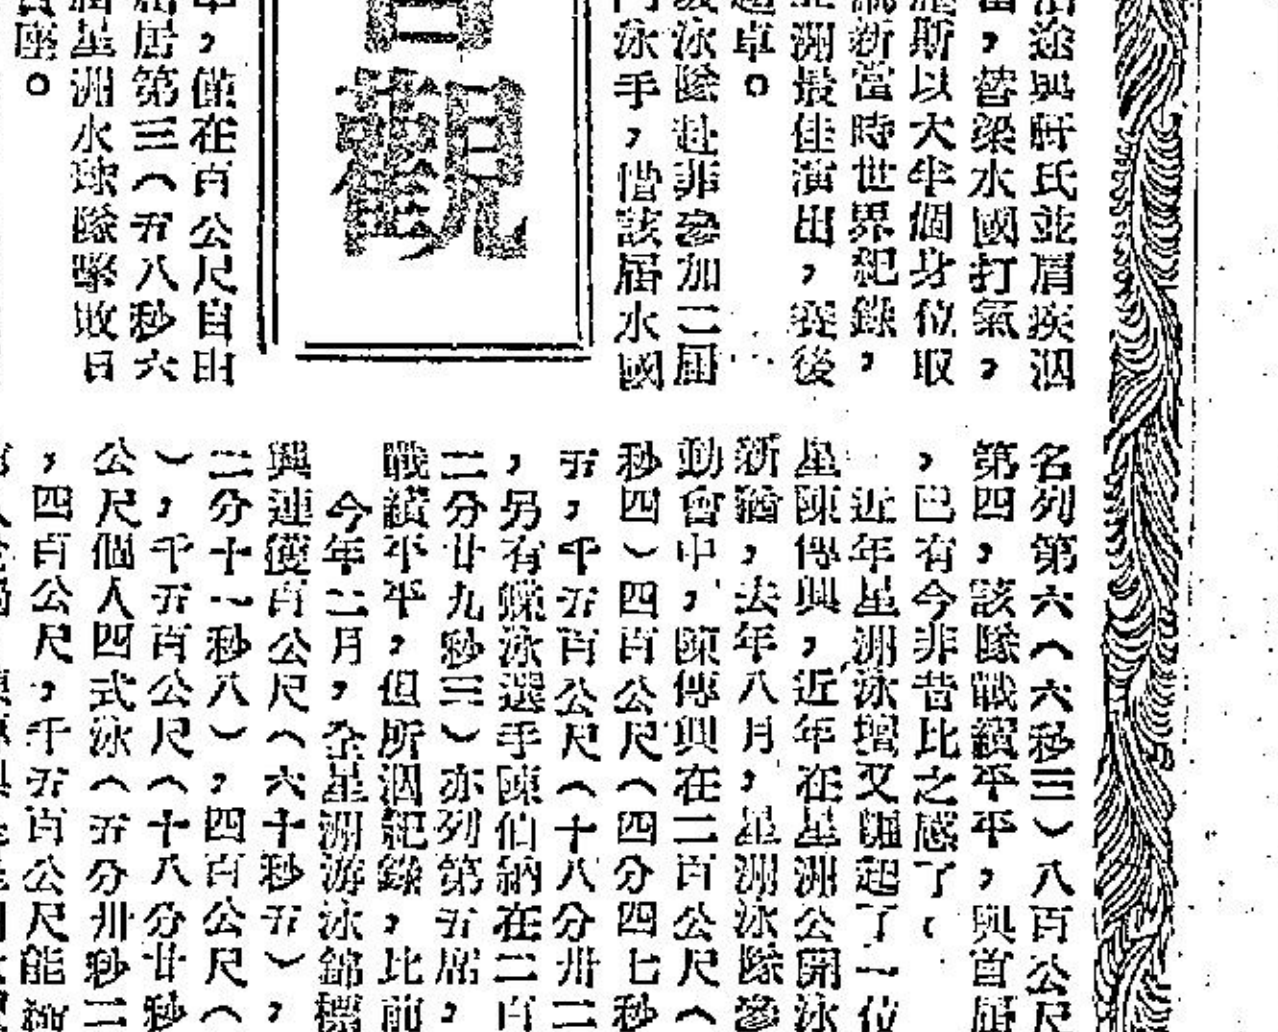 途與軒氏並肩疾泅
，替梁水國打氣，
斯以大半個身位取
新當時世界紀錄，
洲最佳演出，賽後
卓。
泳隊赴非參加二屆
泳手，惜該屆水國
觀
，僅在百公尺自由
居第三（五八秒六
星洲水球隊擊敗日
座。
名列第六（六秒三）八百公尺
第四，該隊戰績平平，與首屆
，已有今非昔比之感了
近年星洲泳壇又崛起了一位
星陳傳興，近年在星洲公開泳
新猷，去年八月，星洲泳隊參
動會中，陳傳興在二百公尺（
秒四）四百公尺（四分四七秒
五，千五百公尺（十八分卅二
，另有蝶泳選手陳伯納在二百
二分廿九秒三）亦列第五席，
戰績平平，但所泅紀錄，比前
今年二月，全星洲游泳錦標
興連獲百公尺（六十秒五），
二分十一秒八），四百公尺（
），千五百公尺（十八分廿秒
公尺個人四式泳（五分卅秒二
，四百公尺，千五百公尺能